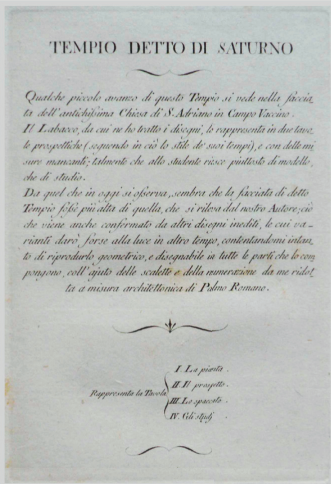 TEMPIO DETTO DI SATURNO
Qualche piccolo avanzo di questo Tempio si vede nella faccia-
ta dell'antichissima Chiesa di S. Adriano in Campo Vaccino.
Il Labacco, da cui ne ho tratto i disegni, lo rappresenta in due tavo-
le prospettiche (seguendo in ciò lo stile de' suoi tempi), e con delle mi-
sure mancanti; talmente che allo studente riesce piuttosto di modello,
che di studio.
Da quel che in oggi si osserva, sembra che la facciata di detto
Tempio fosse più alta di quella, che si rileva dal nostro Autore; ciò
che viene anche confermato da altri disegni inediti, le cui va-
rianti darò forse alla luce in altro tempo, contentandomi intan-
to di riprodurlo geometrico, e disegnabile in tutte le parti che lo com-
pongono, coll'ajuto delle scalette e della numerazione da me ridot-
ta a misura architettonica di Palmo Romano.
Rappresenta la Tavola
I. La pianta.
II. Il prospetto.
III. Lo spaccato.
IV. Gli studj.